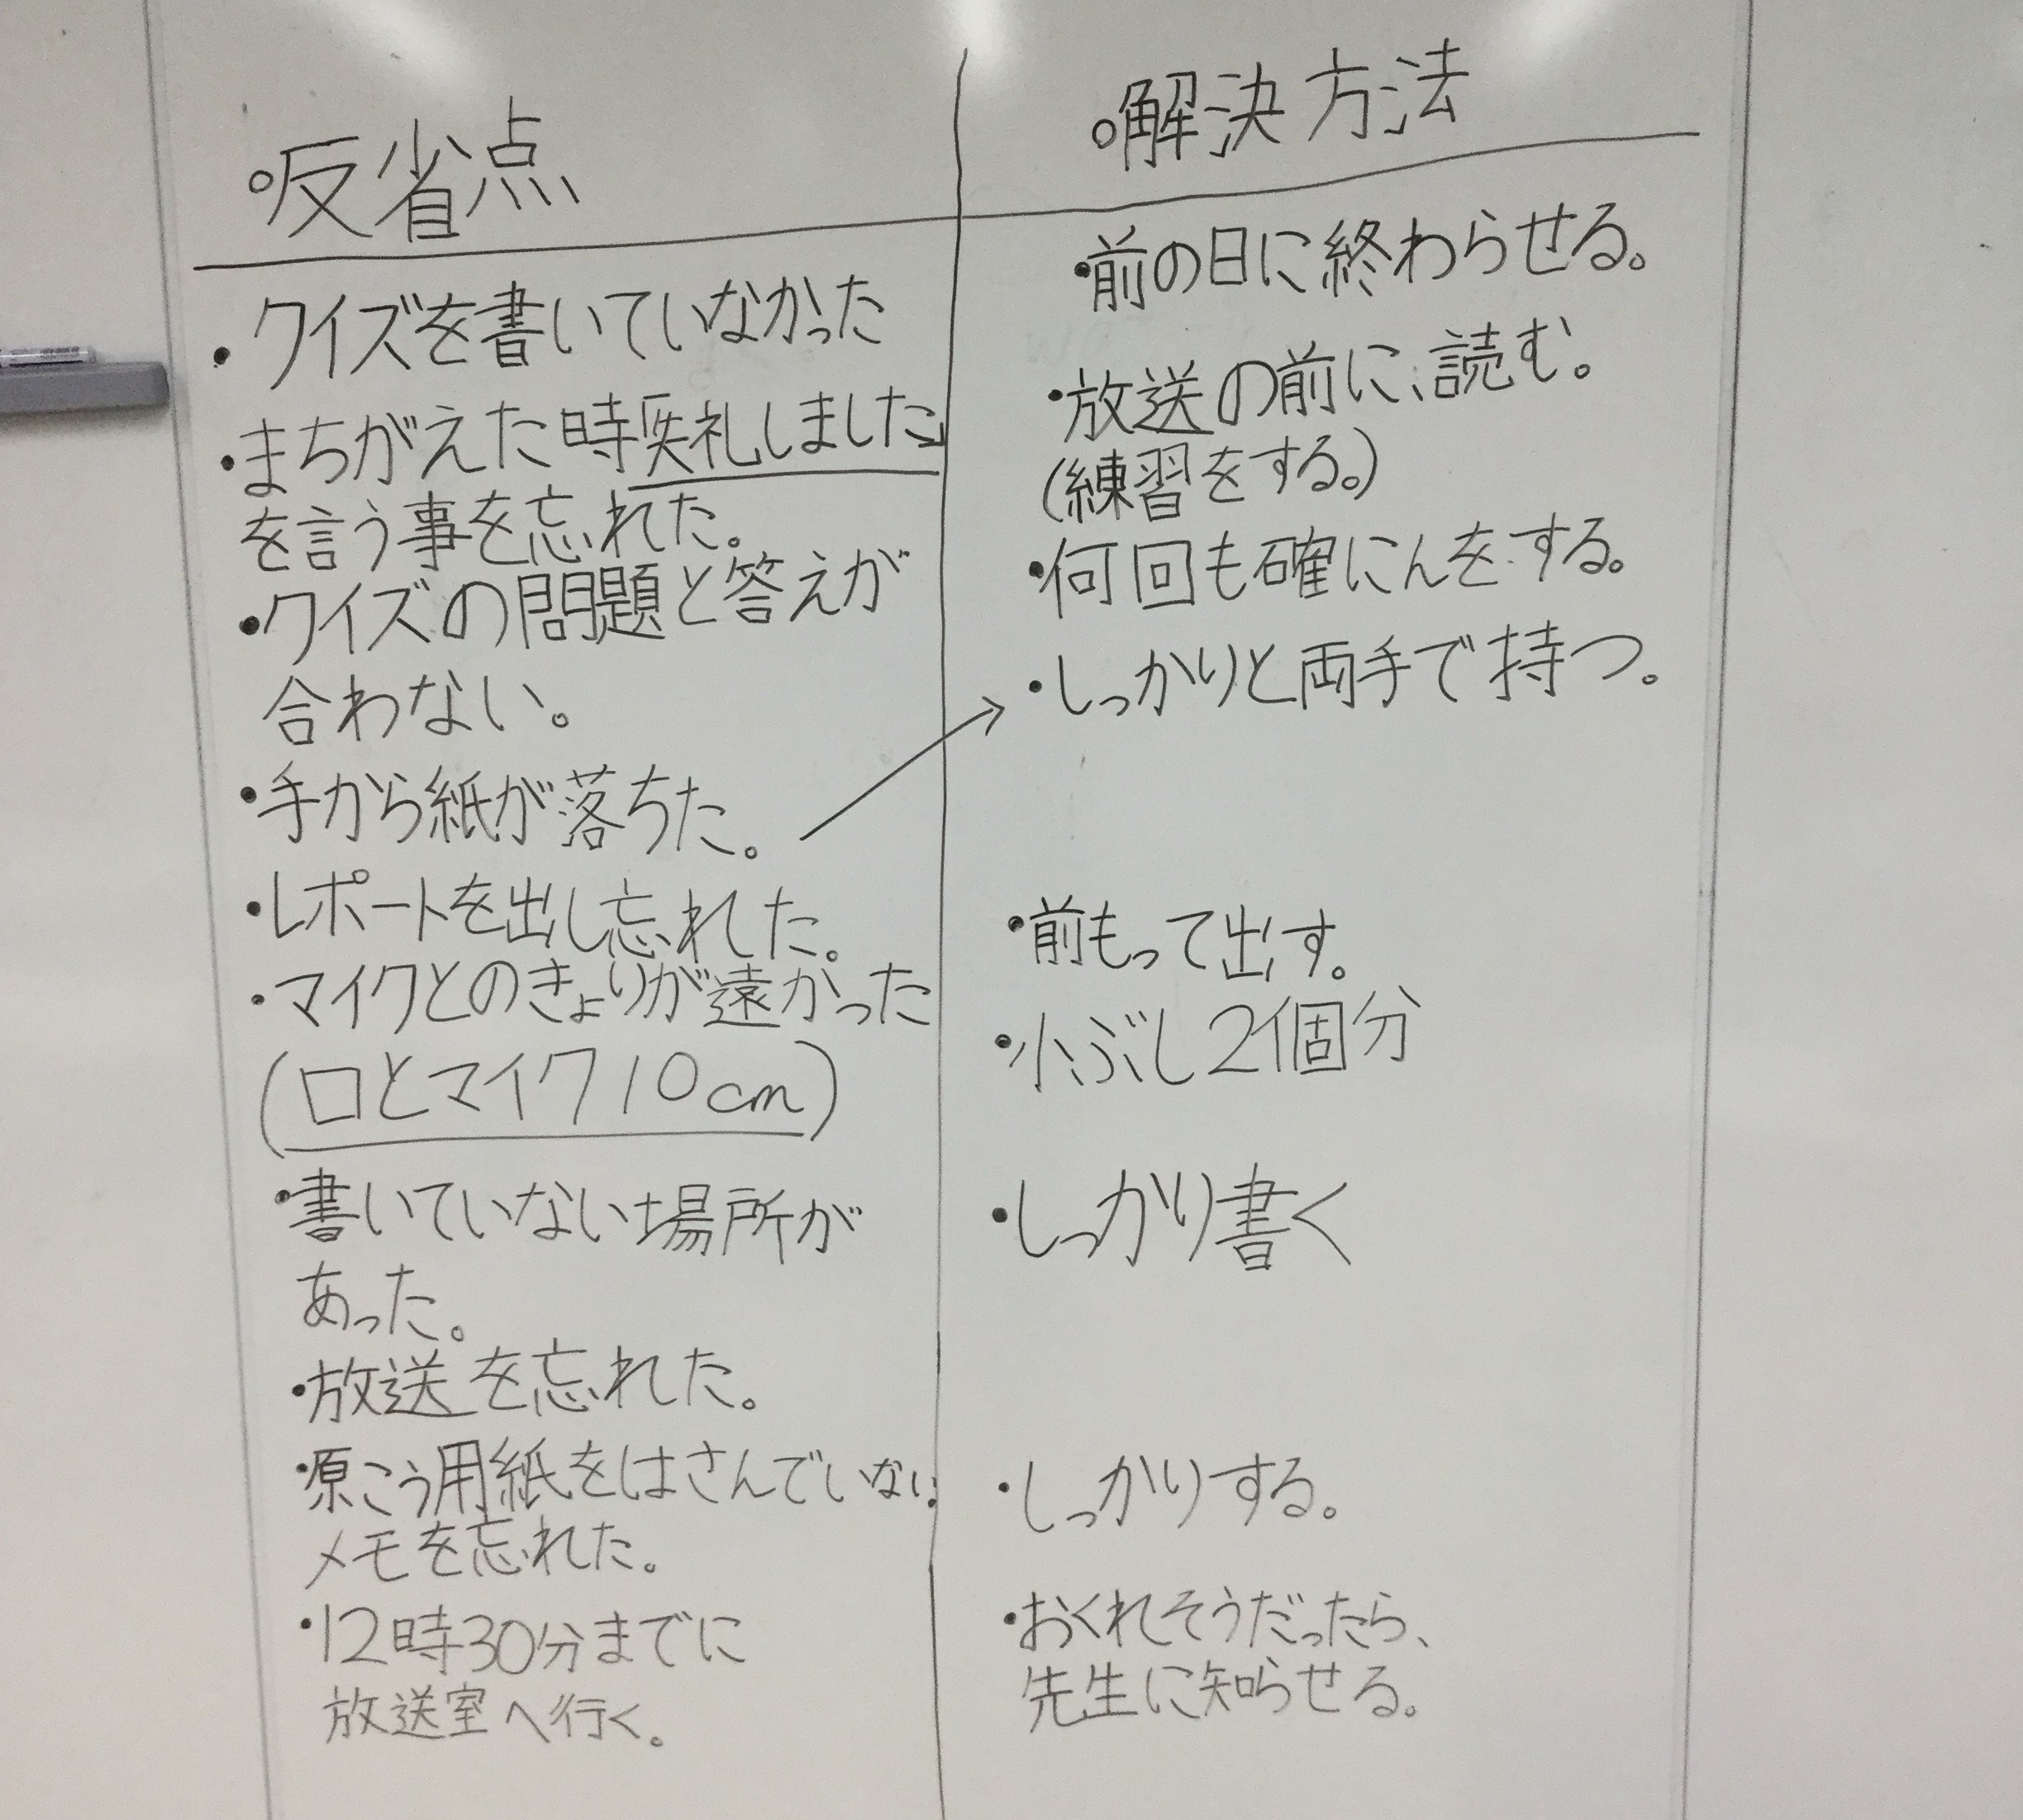 ○反省点
・クイズを書いていなかった
・まちがえた時失礼しました
を言う事を忘れた。
・クイズの問題と答えが
合わない。
・手から紙が落ちた。
・レポートを出し忘れた。
・マイクとのきょりが遠かった
(口とマイク10cm)
・書いていない場所が
あった。
・放送を忘れた。
・原こう用紙をはさんでいない。
メモを忘れた。
・12時30分までに
放送室へ行く。
○解決方法
・前の日に終わらせる。
・放送の前に、読む。
(練習をする。)
・何回も確にんをする。
・しっかりと両手で持つ。
・前もって出す。
・小ぶし2個分
・しっかり書く
・しっかりする。
・おくれそうだったら、
先生に知らせる。